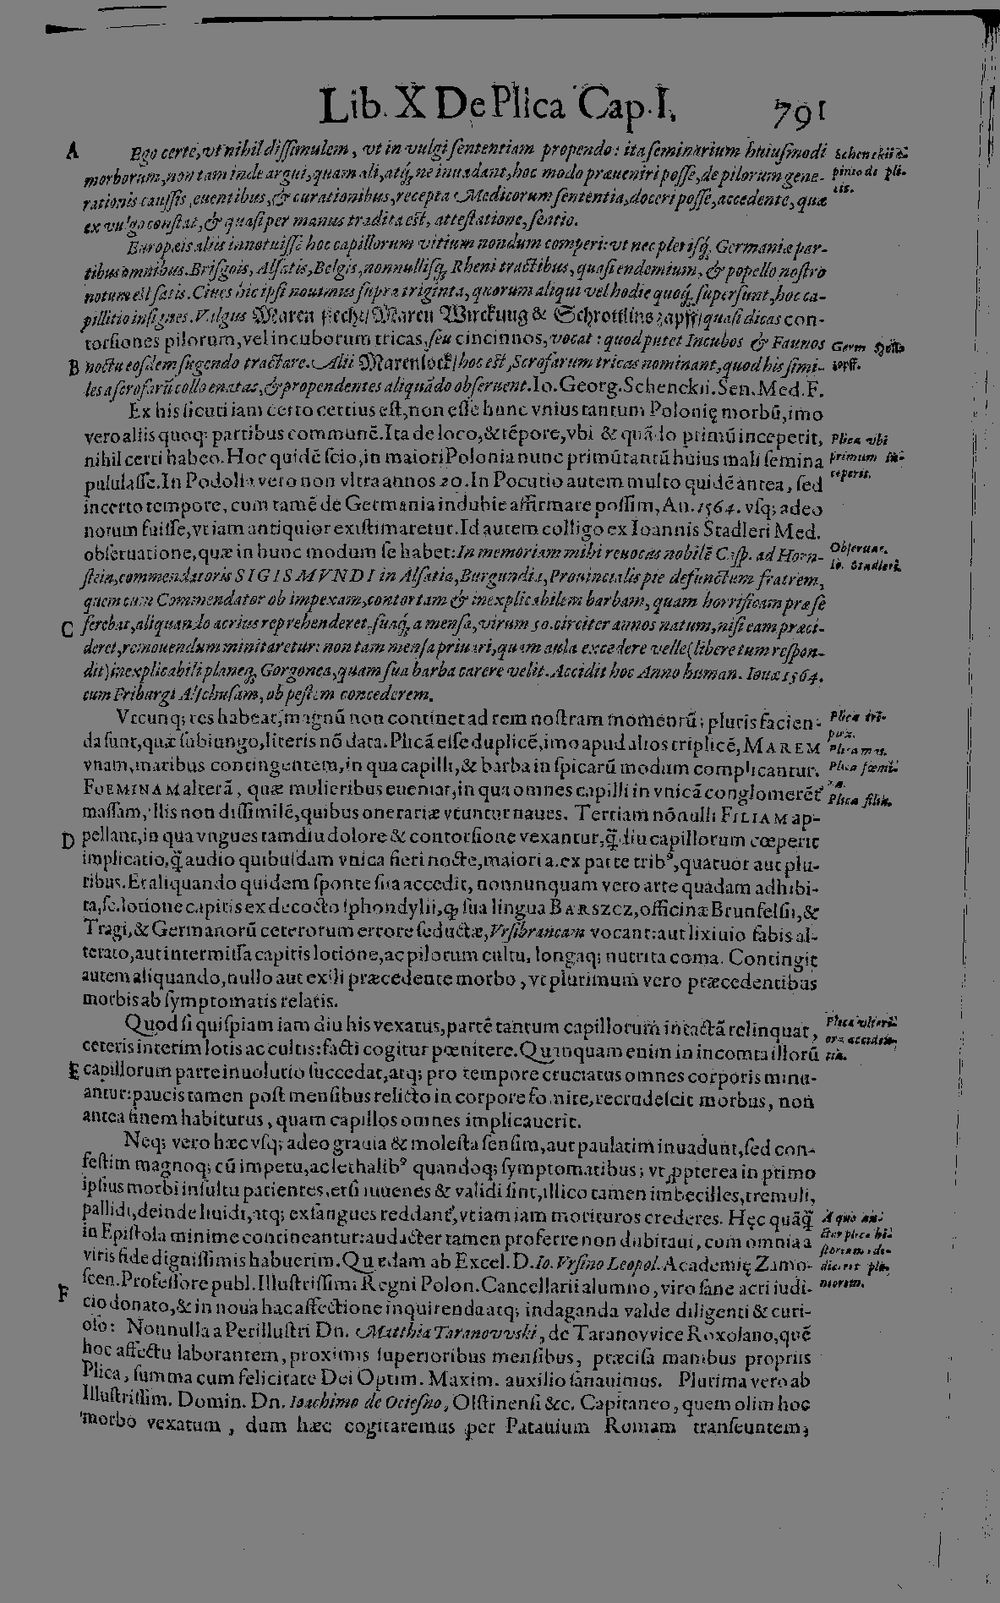 Lib. X De Plica Cap. I. 791
A Ego certe, vt nihil dissimulem, vt in vulgi sententiam propendo: ita seminarium huiusmodi
morborum, non tam inde argui, quam ali, atq́; ne inuadant, hoc modo præueniri posse, de pilorum gene-
rationis caussis, euentibus, & curationibus, recepta Medicorum sententia, doceri posse, accedente, quæ
ex vulgo constat, & quasi per manus tradita est, attestatione, sentio.
Schenckii
pinio de pli-
cis.
Europæis aliis innotuisse hoc capillorum vitium nondum comperi: vt nec plerisq́; Germaniæ par-
tibus omnibus. Brisgois, Alsatis, Belgis, nonnullisq́; Rheni tractibus, quasi endomium, & popello nostro
notum est satis. Ciues hic ipsi nouimus supra triginta, quorum aliqui vel hodie quoq́; supersunt, hoc ca-
pillitio insignes. Vulgus Maren flecht/ Maren Wirckung & Schrottlins zapff/ quasi dicas con-
torsiones pilorum, vel incuborum tricas, seu cincinnos, vocat: quod putet Incubos & Faunos
B noctu eosdem sugendo tractare. Alii Marenlock/ hoc est, Scrofarum tricas nominant, quod his simi-
les a scrofarũ collo enatas, & propendentes aliquãdo obseruent. Io. Georg. Schenckii. Sen. Med. F.
Ex his sicuti iam certo certius est, non esse hunc vnius tantum Polonię morbũ, imo
vero aliis quoq; partibus communẽ. Ita de loco, & tẽpore, vbi & quãdo primũ inceperit,
nihil certi habeo. Hoc quidẽ scio, in maiori Polonia nunc primũ tantũ huius mali semina
pululasse. In Podolia vero non vltra annos 20. In Pocutio autem multo quidẽ antea, sed
incerto tempore, cum tamẽ de Germania indubie affirmare possim, An. 1564. vsq; adeo
norum fuisse, vt iam antiquior existimaretur. Id autem colligo ex Ioannis Stadleri Med.
obseruatione, quæ in hunc modum se habet: In memoriam mihi reuocas nobilẽ Casp. ad Horn-
stein, commendatoris SIGISMVNDI in Alsatia, Burgundia, Prouincialis pie defunctum fratrem,
quem cum Commendator ob impexam, contortam & inexplicabilem barbam, quam horrificam præ se
C ferebat, aliquando acrius reprehenderet, suaq́; a mensa, virum 50. circiter annos natum, nisi eam præci-
deret, remouendum minitaretur: non tam mensa priuari, quam aula excedere velle (libere tum respon-
dit) inexplicabili planeq́; Gorgonea, quam sua barba carere velit. Accidit hoc Anno human. Iouæ 1564.
cum Friburgi Alschusam, ob pestem concederem.
Plica vbi
primum
ceperit.
Obseruat.
Io. Stadleri.
Vtcunq; res habeat, magnũ non continet ad rem nostram momentũ; pluris facien-
da sunt, quæ subiungo, literis nõ data. Plicã esse duplicẽ, imo apud alios triplicẽ, MAREM
vnam, maribus contingentem, in qua capilli, & barba in spicarũ modum complicantur.
FOEMINAM alterã, quæ mulieribus eueniat, in qua omnes capilli in vnicã conglomerẽt
massam, illis non dissimilẽ, quibus onerariæ vtuntur naues. Tertiam nõnulli FILIAM ap-
D pellant, in qua vngues tamdiu dolore & contorsione vexantur, q̃diu capillorum cœperit
implicatio, q̃ audio quibusdam vnica fieri nocte, maiori a. ex parte tribꝰ, quatuor aut plu-
ribus. Et aliquando quidem sponte sua accedit, nonnunquam vero arte quadam adhibi-
ta, sc. lotione capitis ex decocto sphondylii, ꝙ sua lingua BARSZCZ, officinæ Brunfelsii, &
Tragi, & Germanorũ ceterorum errore seductæ, Vrsibrancam vocant: aut lixiuio fabis al-
terato, aut intermissa capitis lotione, ac pilorum cultu, longaq; nutrita coma. Contingit
autem aliquando, nullo aut exili præcedente morbo, vt plurimum vero præcedentibus
morbis ab symptomatis relatis.
Plica tri-
plex.
Plica mas.
Plica fœmi-
na.
Plica filia.
Quod si quispiam iam diu his vexatus, partẽ tantum capillorum intactã relinquat,
ceteris interim lotis ac cultis: facti cogitur pœnitere. Quanquam enim in incomta illorũ
E capillorum parte inuolutio succedat, atq; pro tempore cruciatus omnes corporis minu-
antur: paucis tamen post mensibus relicto in corpore fomite, recrudescit morbus, non
antea finem habiturus, quam capillos omnes implicauerit.
Neq; vero hæc vsq; adeo grauia & molesta sensim, aut paulatim inuadunt, sed con-
festim magnoq; cũ impetu, ac lethalibꝰ quandoq; symptomatibus; vt ꝓpterea in primo
ipsius morbi insultu patientes, etsi iuuenes & validi sint, illico tamen imbecilles, tremuli,
pallidi, deinde liuidi, atq; exsangues reddant, vt iam iam morituros crederes. Hęc quãq̃
in Epistola minime contineantur: audacter tamen proferre non dubitaui, cum omnia a
viris fide dignissimis habuerim. Quædam ab Excel. D. Io. Vrsino Leopol. Academię Zamo-
F scen. Professore publ. Illustrissimi Regni Polon. Cancellarii alumno, viro sane acri iudi-
cio donato, & in noua hac affectione inquirenda atq; indaganda valde diligenti & curi-
oso: Nonnulla a Perillustri Dn. Matthia Taranovvski, de Taranovvice Roxolano, quẽ
hoc affectu laborantem, proximis superioribus mensibus, præcisa manibus propriis
Plica, summa cum felicitate Dei Optim. Maxim. auxilio sanauimus. Plurima vero ab
Illustrissim. Domin. Dn. Ioachimo de Ociesno, Olstinensi &c. Capitaneo, quem olim hoc
morbo vexatum, dum hæc cogitaremus per Patauium Romam transeuntem,
A quo au-
ctor